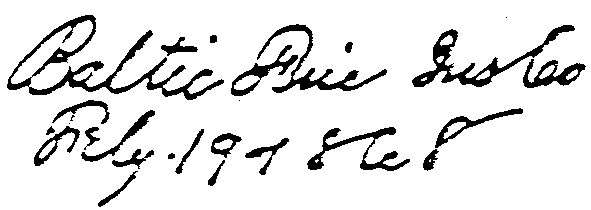 Baltic Fire Ins Co
Feby. 19th 1868